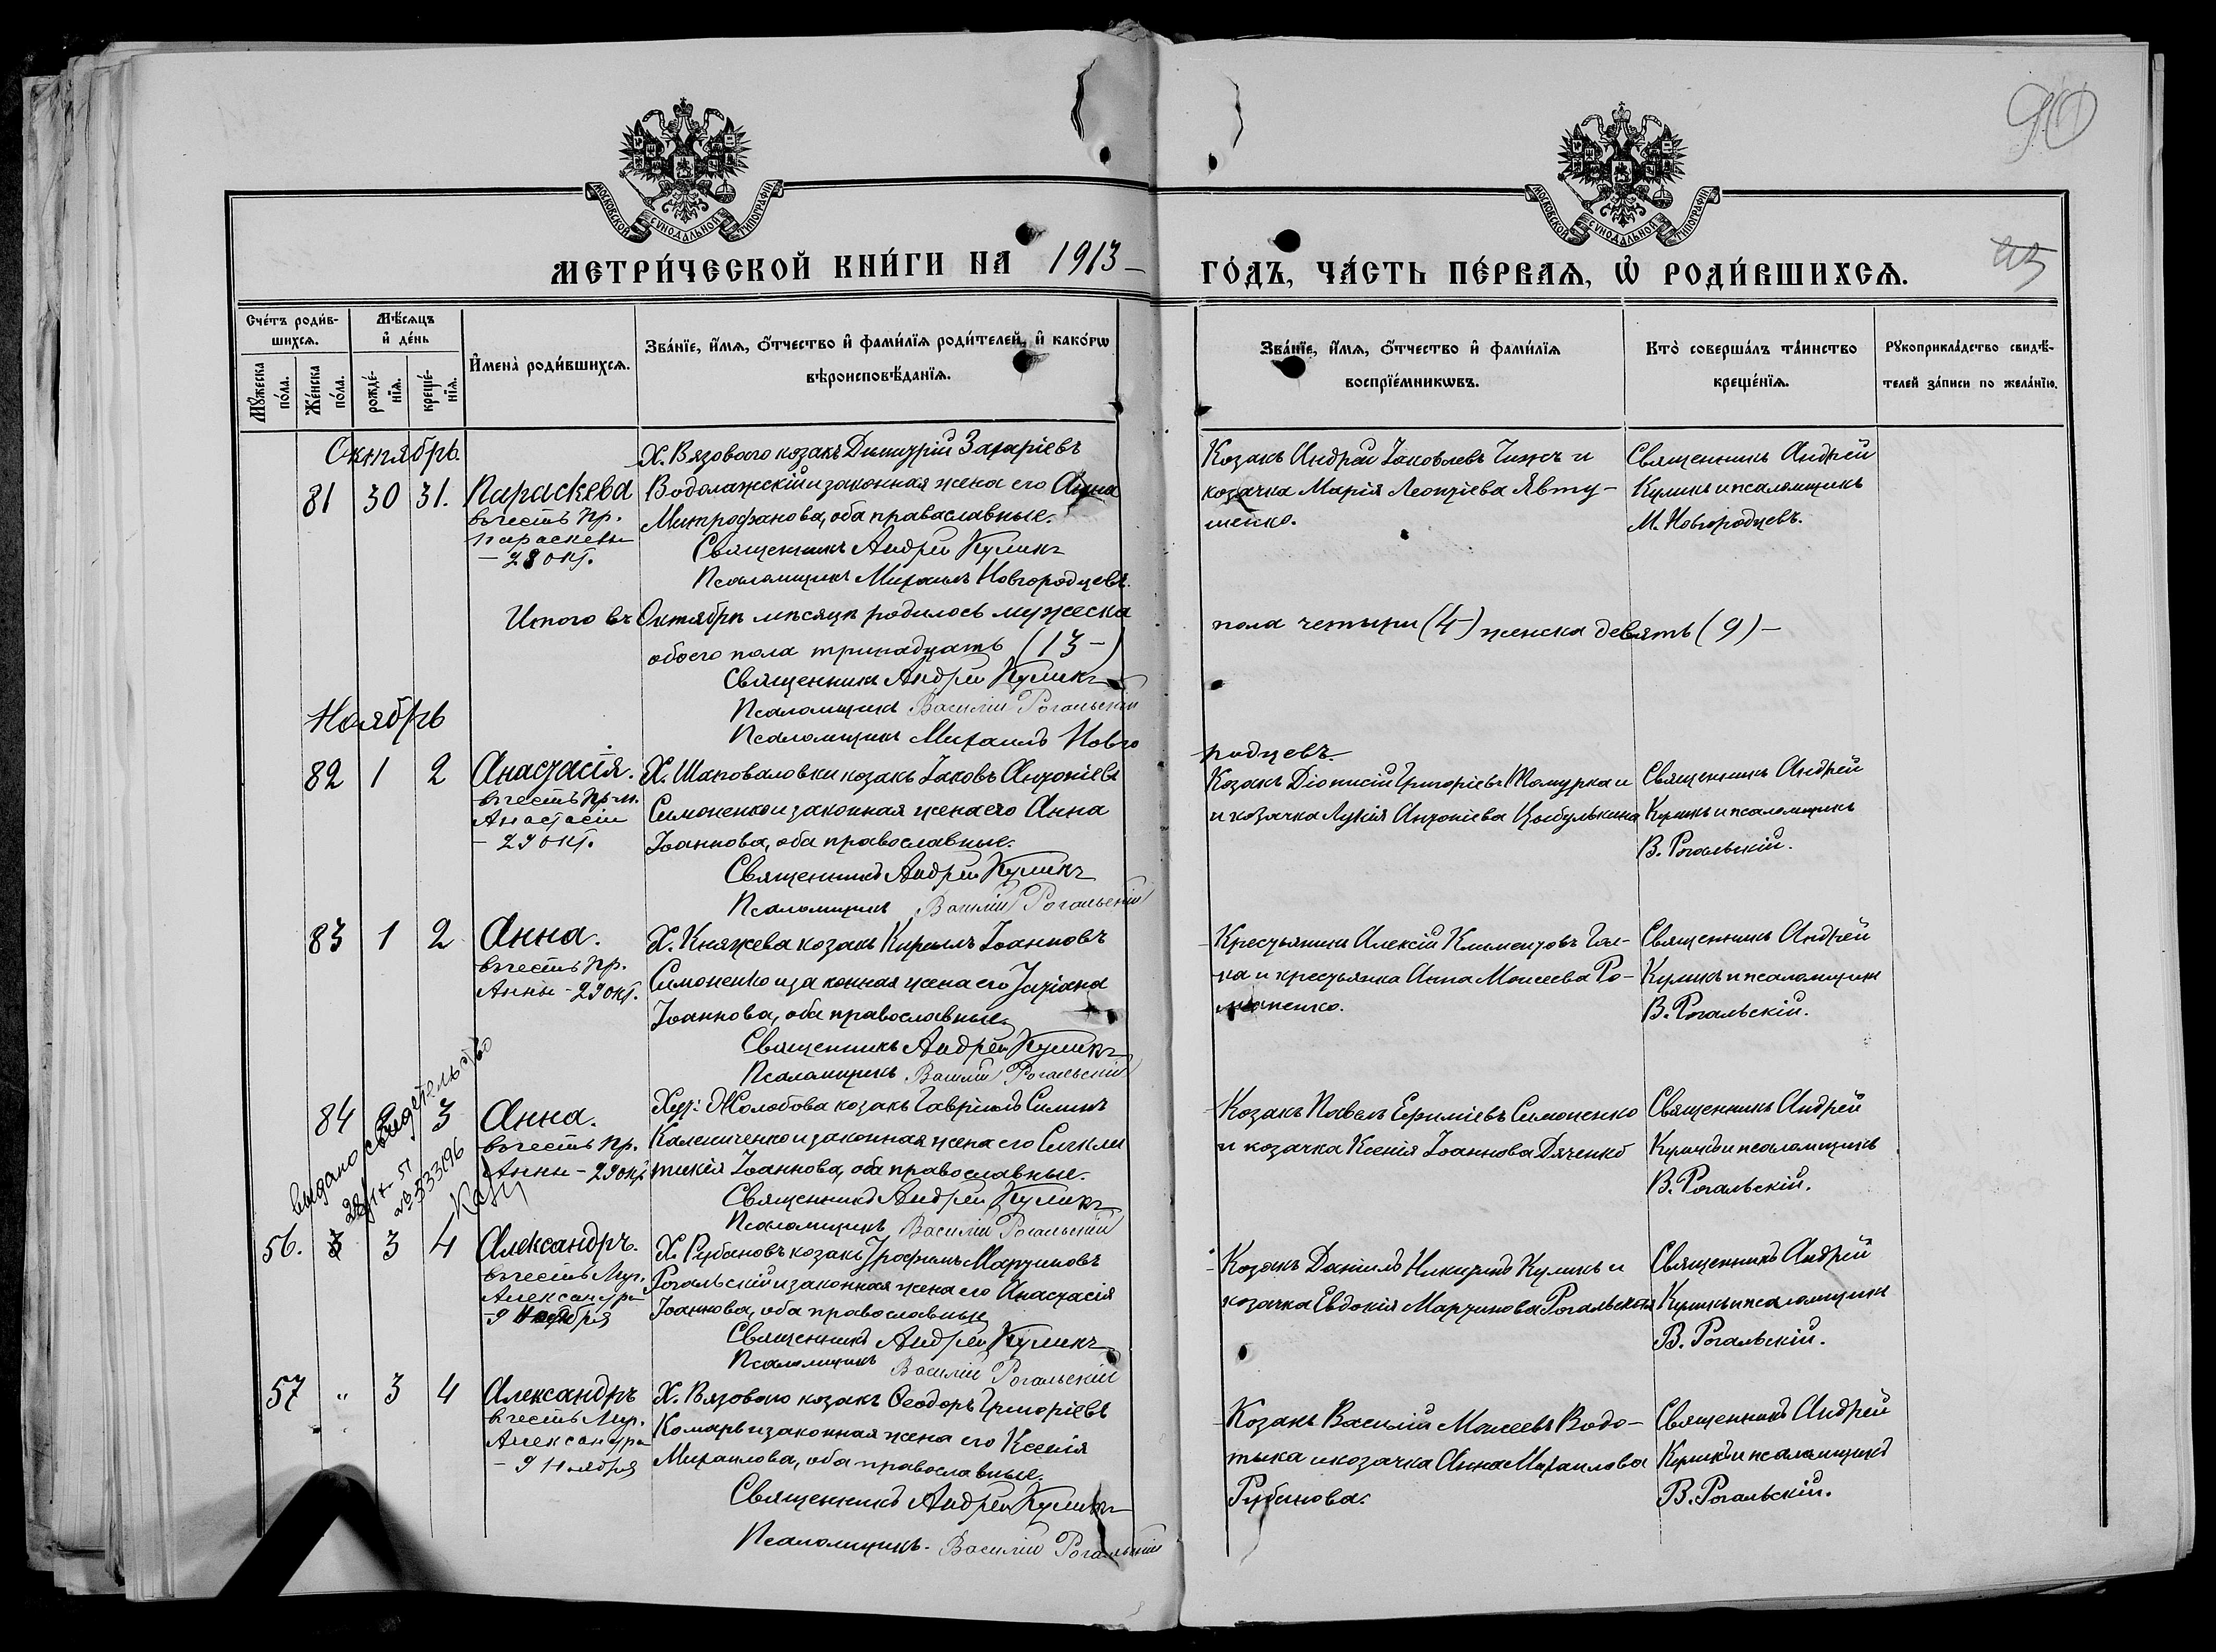 90
МОСКОВСКОЙ СѴНОДАЛЬНОЙ ТИПОГРАФІИ
МОСКОВСКОЙ СѴНОДАЛЬНОЙ ТИПОГРАФІИ
МЕТРИ́ЧЕСКОЙ КНИ́ГИ НА 1913 –
ГО́ДЪ, ЧА́СТЬ ПЕ́РВАѦ, Ѡ҆ РОДИ́ВШИХСѦ.
Сче́тъ роди́в-
шихсѧ.
Мѣ́сѧцъ
и҆ де́нь
Мꙋ́жеска
по́ла.
Же́нска
по́ла.
рожде́-
нїѧ.
креще́-
нїѧ.
И҆мена̀ роди́вшихсѧ.
Зва́нїе, и҆́мѧ, ѻ҆́тчество и҆ фами́лїѧ роди́телей, и҆ како́гѡ
вѣроисповѣ́данїѧ.
Зва́нїе, и҆́мѧ, ѻ҆́тчество и҆ фами́лїѧ
воспрїе́мникѡвъ.
Кто̀ соверша́лъ та́инство
креще́нїѧ.
Рꙋкоприкла́дство свидѣ́-
телей за́писи по жела́нїю.
Октябрь.
81 30 31. Параскева
въ честь пр.
Параскевы
– 28 окт.
Х. Вязоваго козакъ Димитрій Захаріевъ
Водолажскій и законная жена его Анна
Митрофанова, оба православные.
Священникъ Андрей Куликъ
Псаломщикъ Михаилъ Новгородцевъ.
Козакъ Андрей Іаковлевъ Чижъ и
козачка Марія Леонтіева Явту-
шенко.
Священникъ Андрей
Куликъ и псаломщикъ
М. Новгородцевъ.
Итого въ Октябрѣ мѣсяцѣ родилось мужеска
пола четыри (4) женска девять (9) –
обоего пола тринадцать (13 –)
Священникъ Андрей Куликъ
Псаломщикъ Василій Рогальскій
Псаломщикъ Михаилъ Новго
родцевъ.
Ноябрь
82 1 2 Анастасія.
въ честь пр-м.
Анастасіи
– 29 окт.
Х. Шаповаловки козакъ Іаковъ Антоніевъ
Симоненко и законная жена его Анна
Іоаннова, оба православные.
Священникъ Андрей Куликъ
Псаломщикъ Василій Рогальскій
Козакъ Діонисій Григоріевъ и
и козачка Лукія Антоніева Цыбулькина
Священникъ Андрей
Куликъ и псаломщикъ
В. Рогальскій.
83 1 2 Анна.
въ честь пр.
Анны – 29 окт.
Х. Княжева козакъ Кириллъ Іоанновъ
Симоненко и законная жена его Татіана
Іоаннова, оба православные.
Священникъ Андрей Куликъ
Псаломщикъ Василій Рогальскій
Крестьянинъ Алексій Климентовъ Гал-
ка и крестьянка Анна Моисеева Ро-
маненко.
Священникъ Андрей
Куликъ и псаломщикъ
В. Рогальскій.
Выдано свидетельство
№ 533196
84 3 Анна.
въ честь пр.
Анны – 29 окт.
Хут: Жолобова козакъ Гавріилъ Силинъ
Калениченко и законная жена его Сигкли
тикія Іоаннова, оба православные.
Священникъ Андрей Куликъ
Псаломщикъ Василій Рогальскій
Козакъ Павелъ Ефиміевъ Симоненко
и козачка Ксенія Іоаннова Дяченко
Священникъ Андрей
Куликъ и псаломщикъ
В. Рогальскій.
56. 3 4 Александръ.
въ честь Муч.
Александра
– 9 Ноября
Х. Рубановъ козакъ Трофимъ Мартиновъ
Рогальскій и законная жена его Анастасія
Іоаннова, оба православные
Священникъ Андрей Куликъ
Псаломщикъ Василій Рогальскій
Козакъ Даніилъ Никитинъ Куликъ и
козачка Евдокія Мартинова Рогальская
Священникъ Андрей
Куликъ и псаломщикъ
В. Рогальскій.
57 " 3 4 Александръ
въ честь Муч.
Александра
– 9 Ноября
Х. Вязоваго козакъ Ѳеодоръ Григоріевъ
Комарь и законная жена его Ксенія
Михаилова, оба православные.
Священникъ Андрей Куликъ
Псаломщикъ. Василій Рогальскій
Козакъ Василій Моисеевъ Водо-
тыка и козачка Анна Михаилова
Рубанова.
Священникъ Андрей
Куликъ и псаломщикъ
В. Рогальскій.